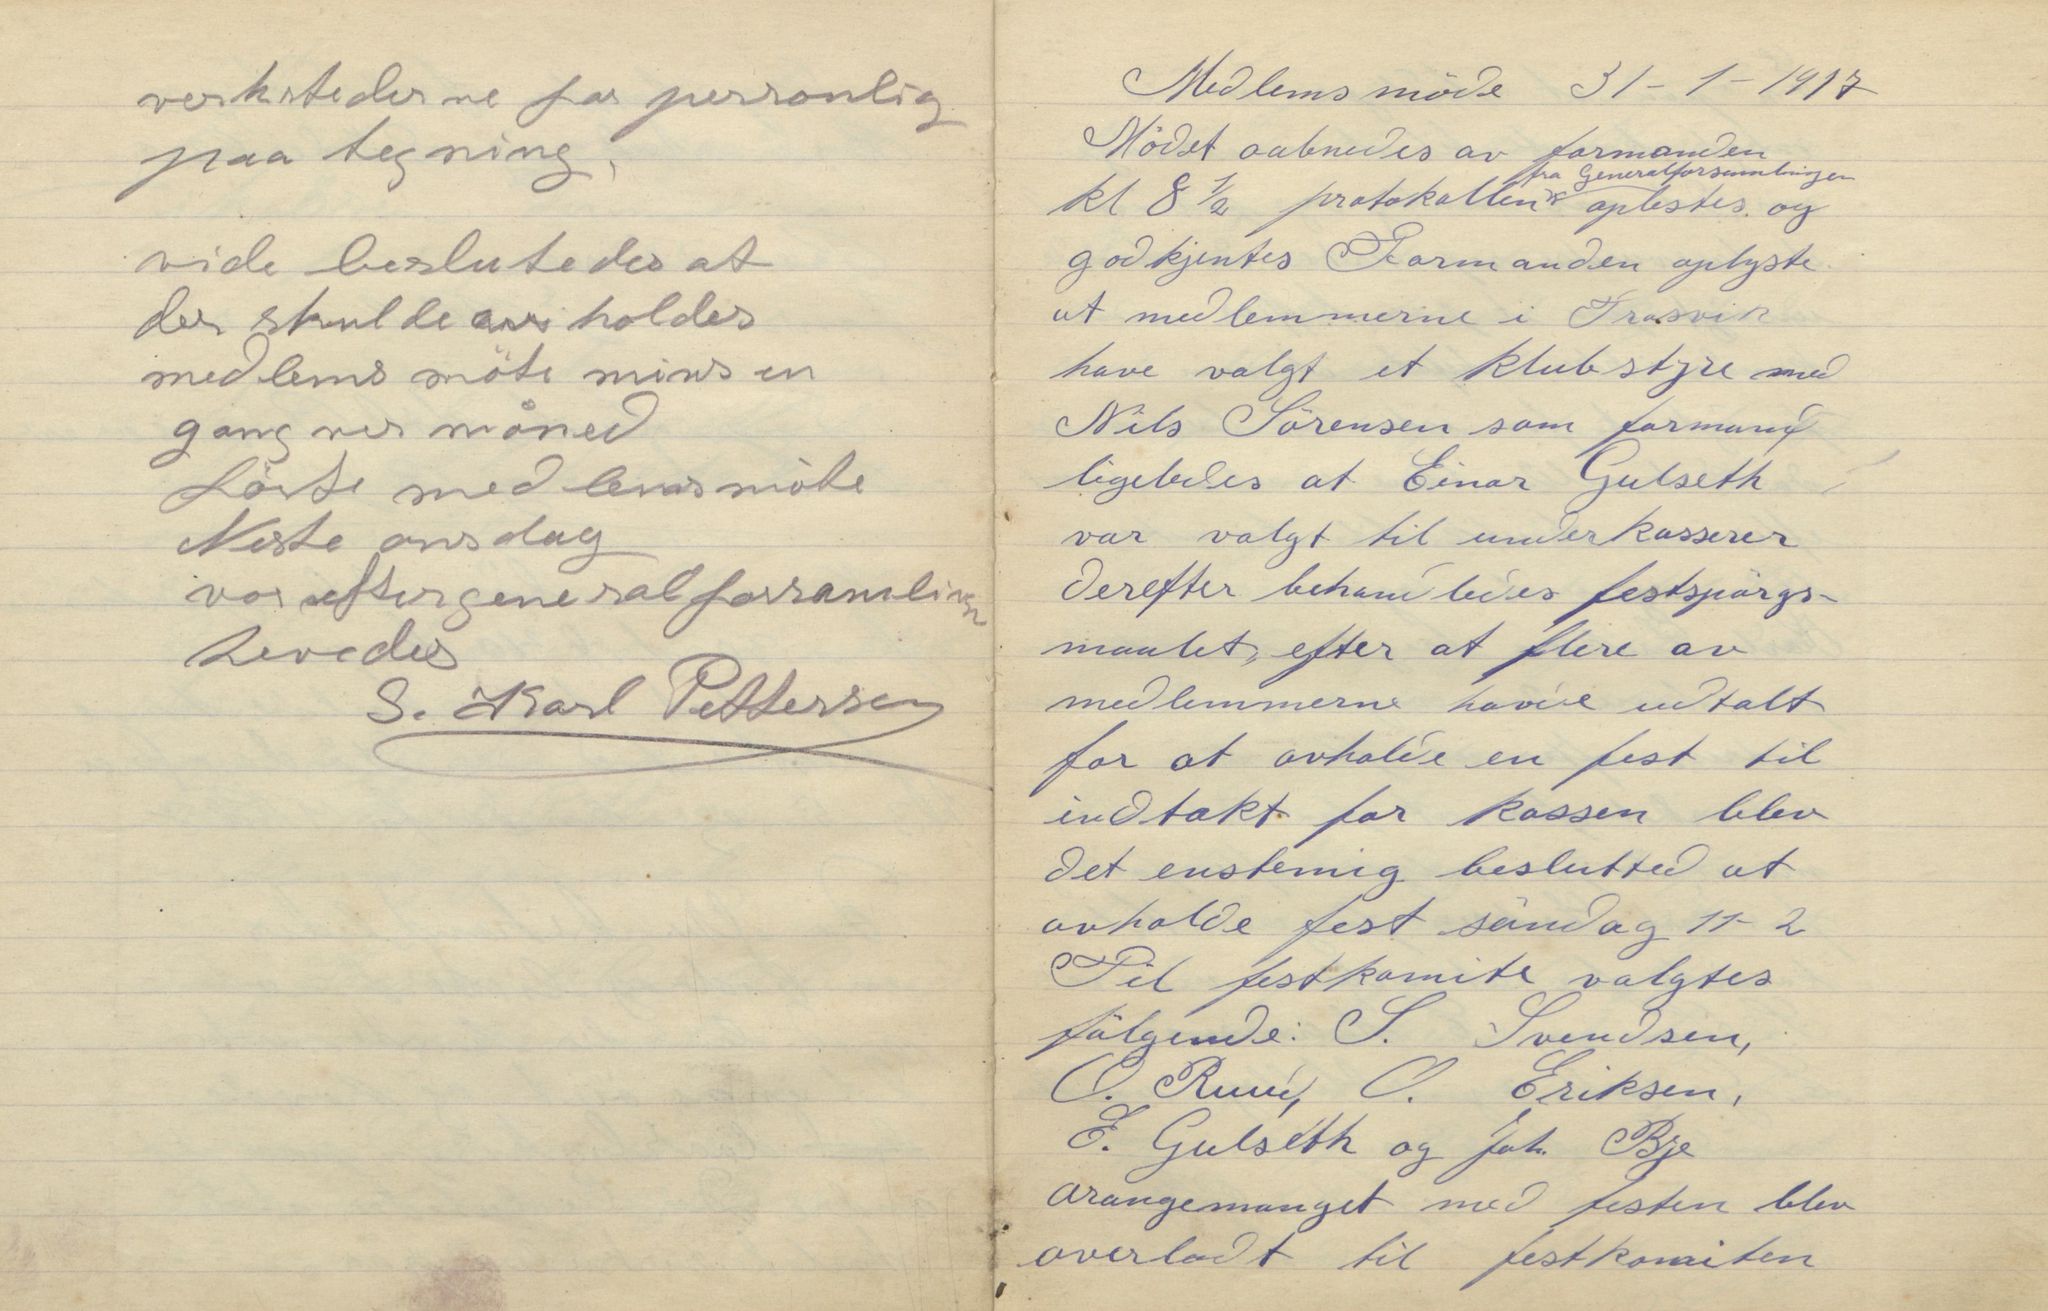 verkstederne for personlig
paa tegning,
vide beslutedes at
der skulde av holdes
medlems möte mins en
gang ver måned
förste medlemsmöte
Neste onsdag
vor efter generalforsamlingen
hevedes
S. Karl Pettersen
Medlemsmöde 31-1-1917
Mödet aabnedes av formanden
fra Generalforsamlingen
kl 8 1/2 protokollen oplestes og
godkjentes Formanden oplyste
at medlemmerne i Trosvik
have valgt et klubstyre med
Nils Sörensen som formand
ligeledes at Einar Gulseth
var valgt til underkasserer
derefter behandledes festspörgs-
maalet, efter at flere av
medlemmerne havde udtalt
for at avholde en fest til
indtækt for kassen blev
det enstemig beslutted at
avholde fest söndag 11-2
Til festkomite valgtes
fölgende: S. Svendsen,
O. Ruud, O. Eriksen,
E. Gulseth og Joh. Bje
arangemanget med festen blev
overladt til festkomiten